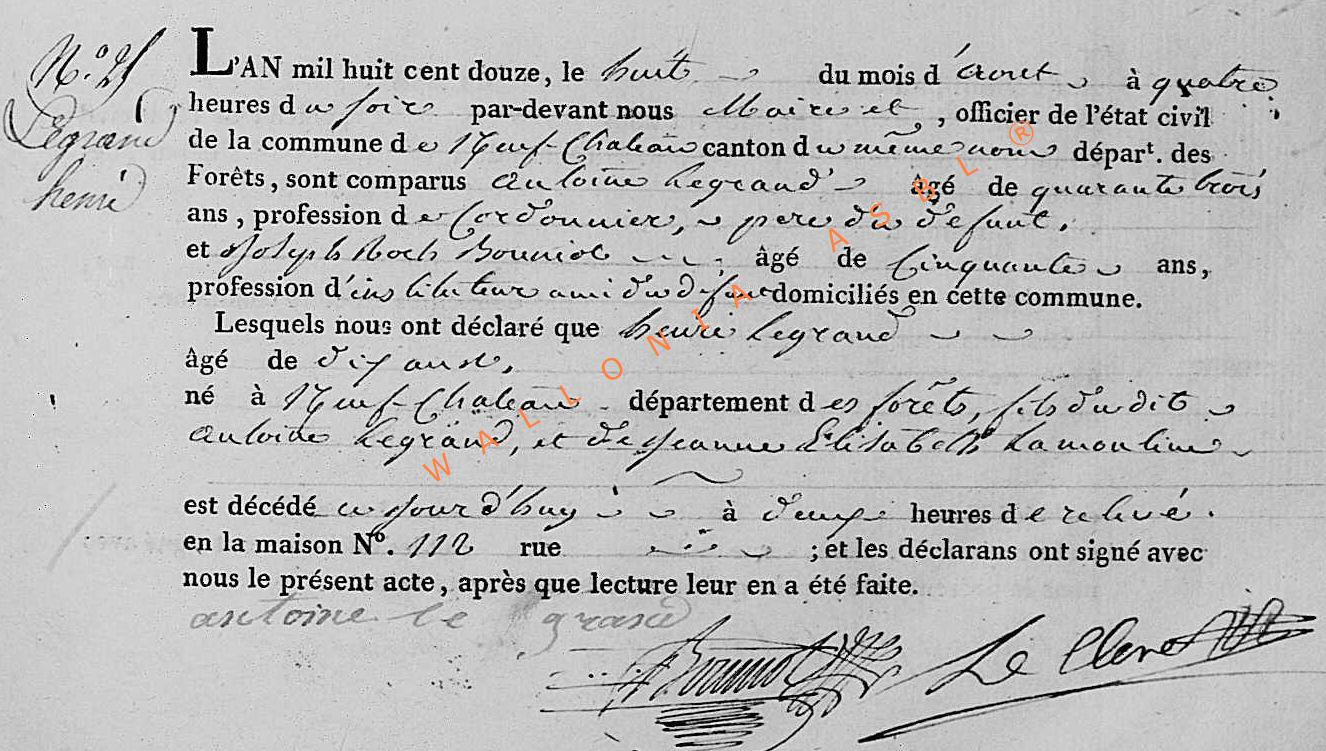 N.o 25
Legrand
henri
L'AN mil huit cent douze, le huit du mois d'aout à quatre
heures du soir par-devant nous Maire et, officier de l'état civil
de la commune de Neuf-Chateau canton du même nom départ. des
Forêts, sont comparus antoine Legrand âgé de quarante trois
ans, profession de Cordonnier, pere du defunt,
et Joseph Roch âgé de Cinquante ans,
profession d'instituteur ami du defunt domiciliés en cette commune.
Lesquels nous ont déclaré que henri Legrand
âgé de dix ans,
né à Neuf-Chateau département des forêts, fils dudit
antoine Legrand, et de Jeanne Elisabeth Lamouline
est décédé ce jourd'huy à deux heures de relevé.
en la maison N.o 112 rue ; et les déclarans ont signé avec
nous le présent acte, après que lecture leur en a été faite.
antoine le grand
Le Clerc
WALLONIA ASBL ®